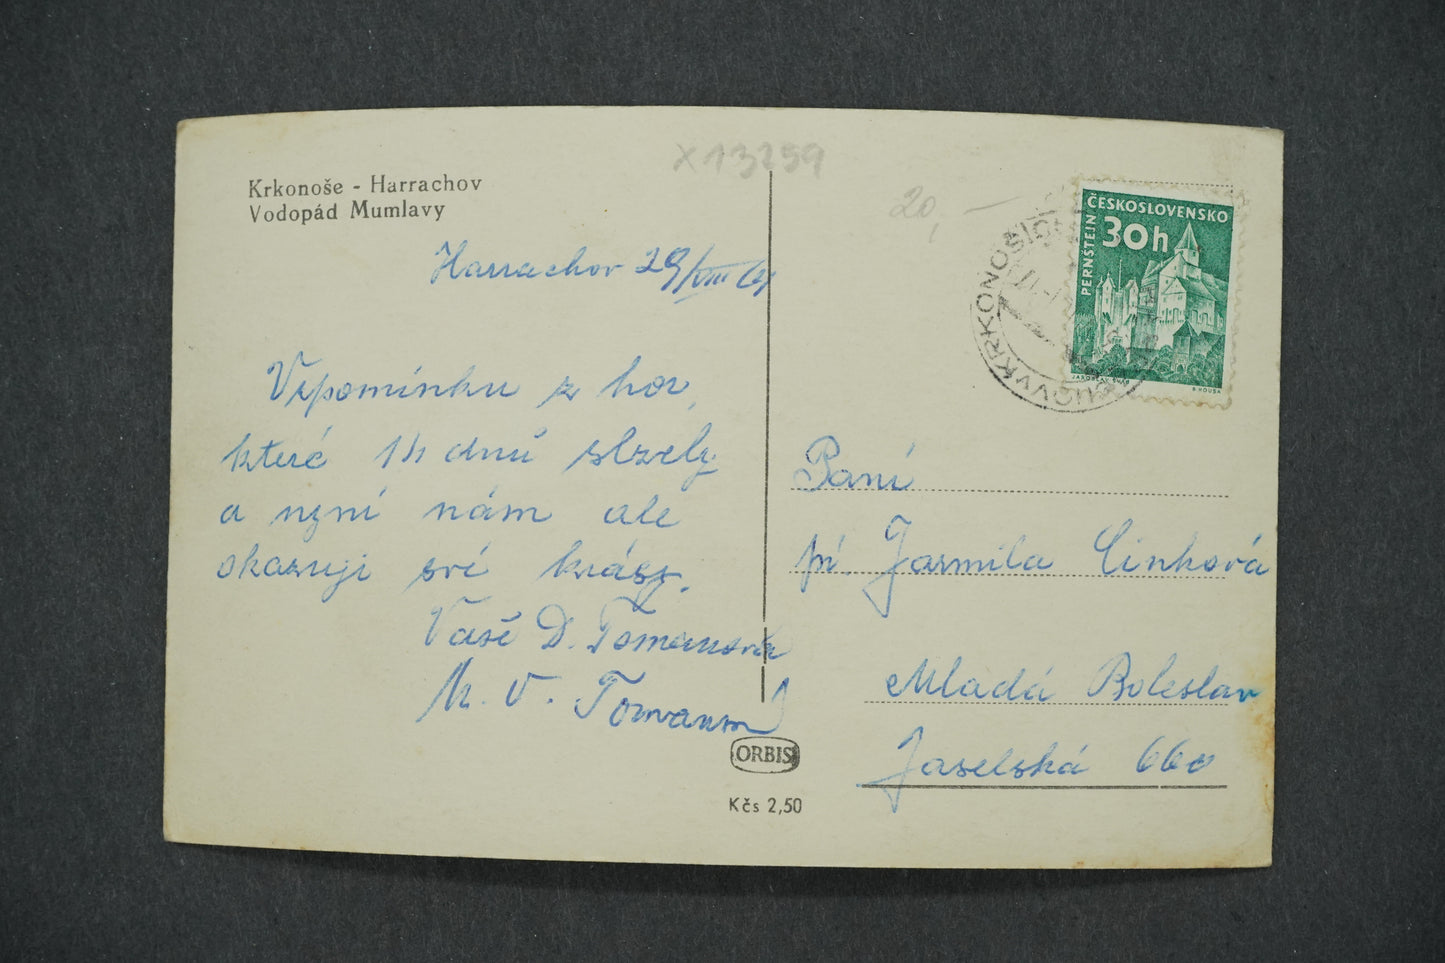 X 13259
20,—
Krkonoše - Harrachov
Vodopád Mumlavy
Harrachov 29/VIII 61
Vzpomínku z hor,
které 14 dnů slzely
a nyní nám ale
okazují své krásy.
Vaše D. Tomanová
V. Toman
ČESKOSLOVENSKO
30h
PERNŠTEJN
JAROSLAV ŠVÁB
Paní
pí. Jarmila Cinková
Mladá Boleslav
Jaselská 660
ORBIS
Kčs 2,50